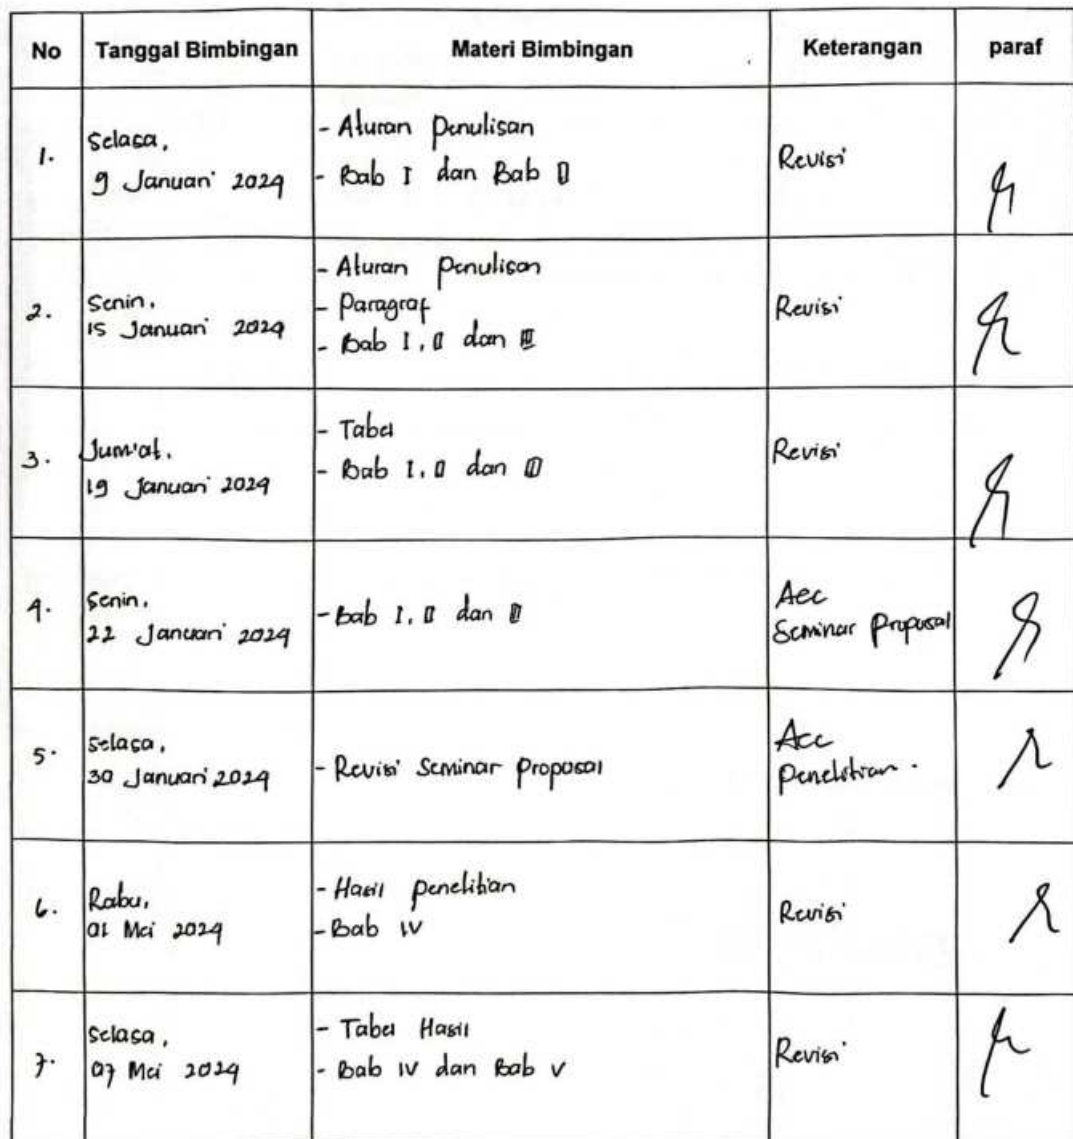 No Tanggal Bimbingan Materi Bimbingan Keterangan paraf
1. Selasa, 9 Januari 2024
- Aturan Penulisan
- Bab I dan Bab II
Revisi
2. Senin, 15 Januari 2024
- Aturan Penulisan
- Paragraf
- Bab I, II dan III
Revisi
3. Jum'at, 19 Januari 2024
- Tabel
- Bab I, II dan III
Revisi
4. Senin, 22 Januari 2024
- Bab I, II dan III
Acc
Seminar Proposal
5. Selasa, 30 Januari 2024
- Revisi Seminar Proposal
Acc
Penelitian.
6. Rabu, 01 Mei 2024
- Hasil Penelitian
- Bab IV
Revisi
7. Selasa, 07 Mei 2024
- Tabel Hasil
- Bab IV dan Bab V
Revisi